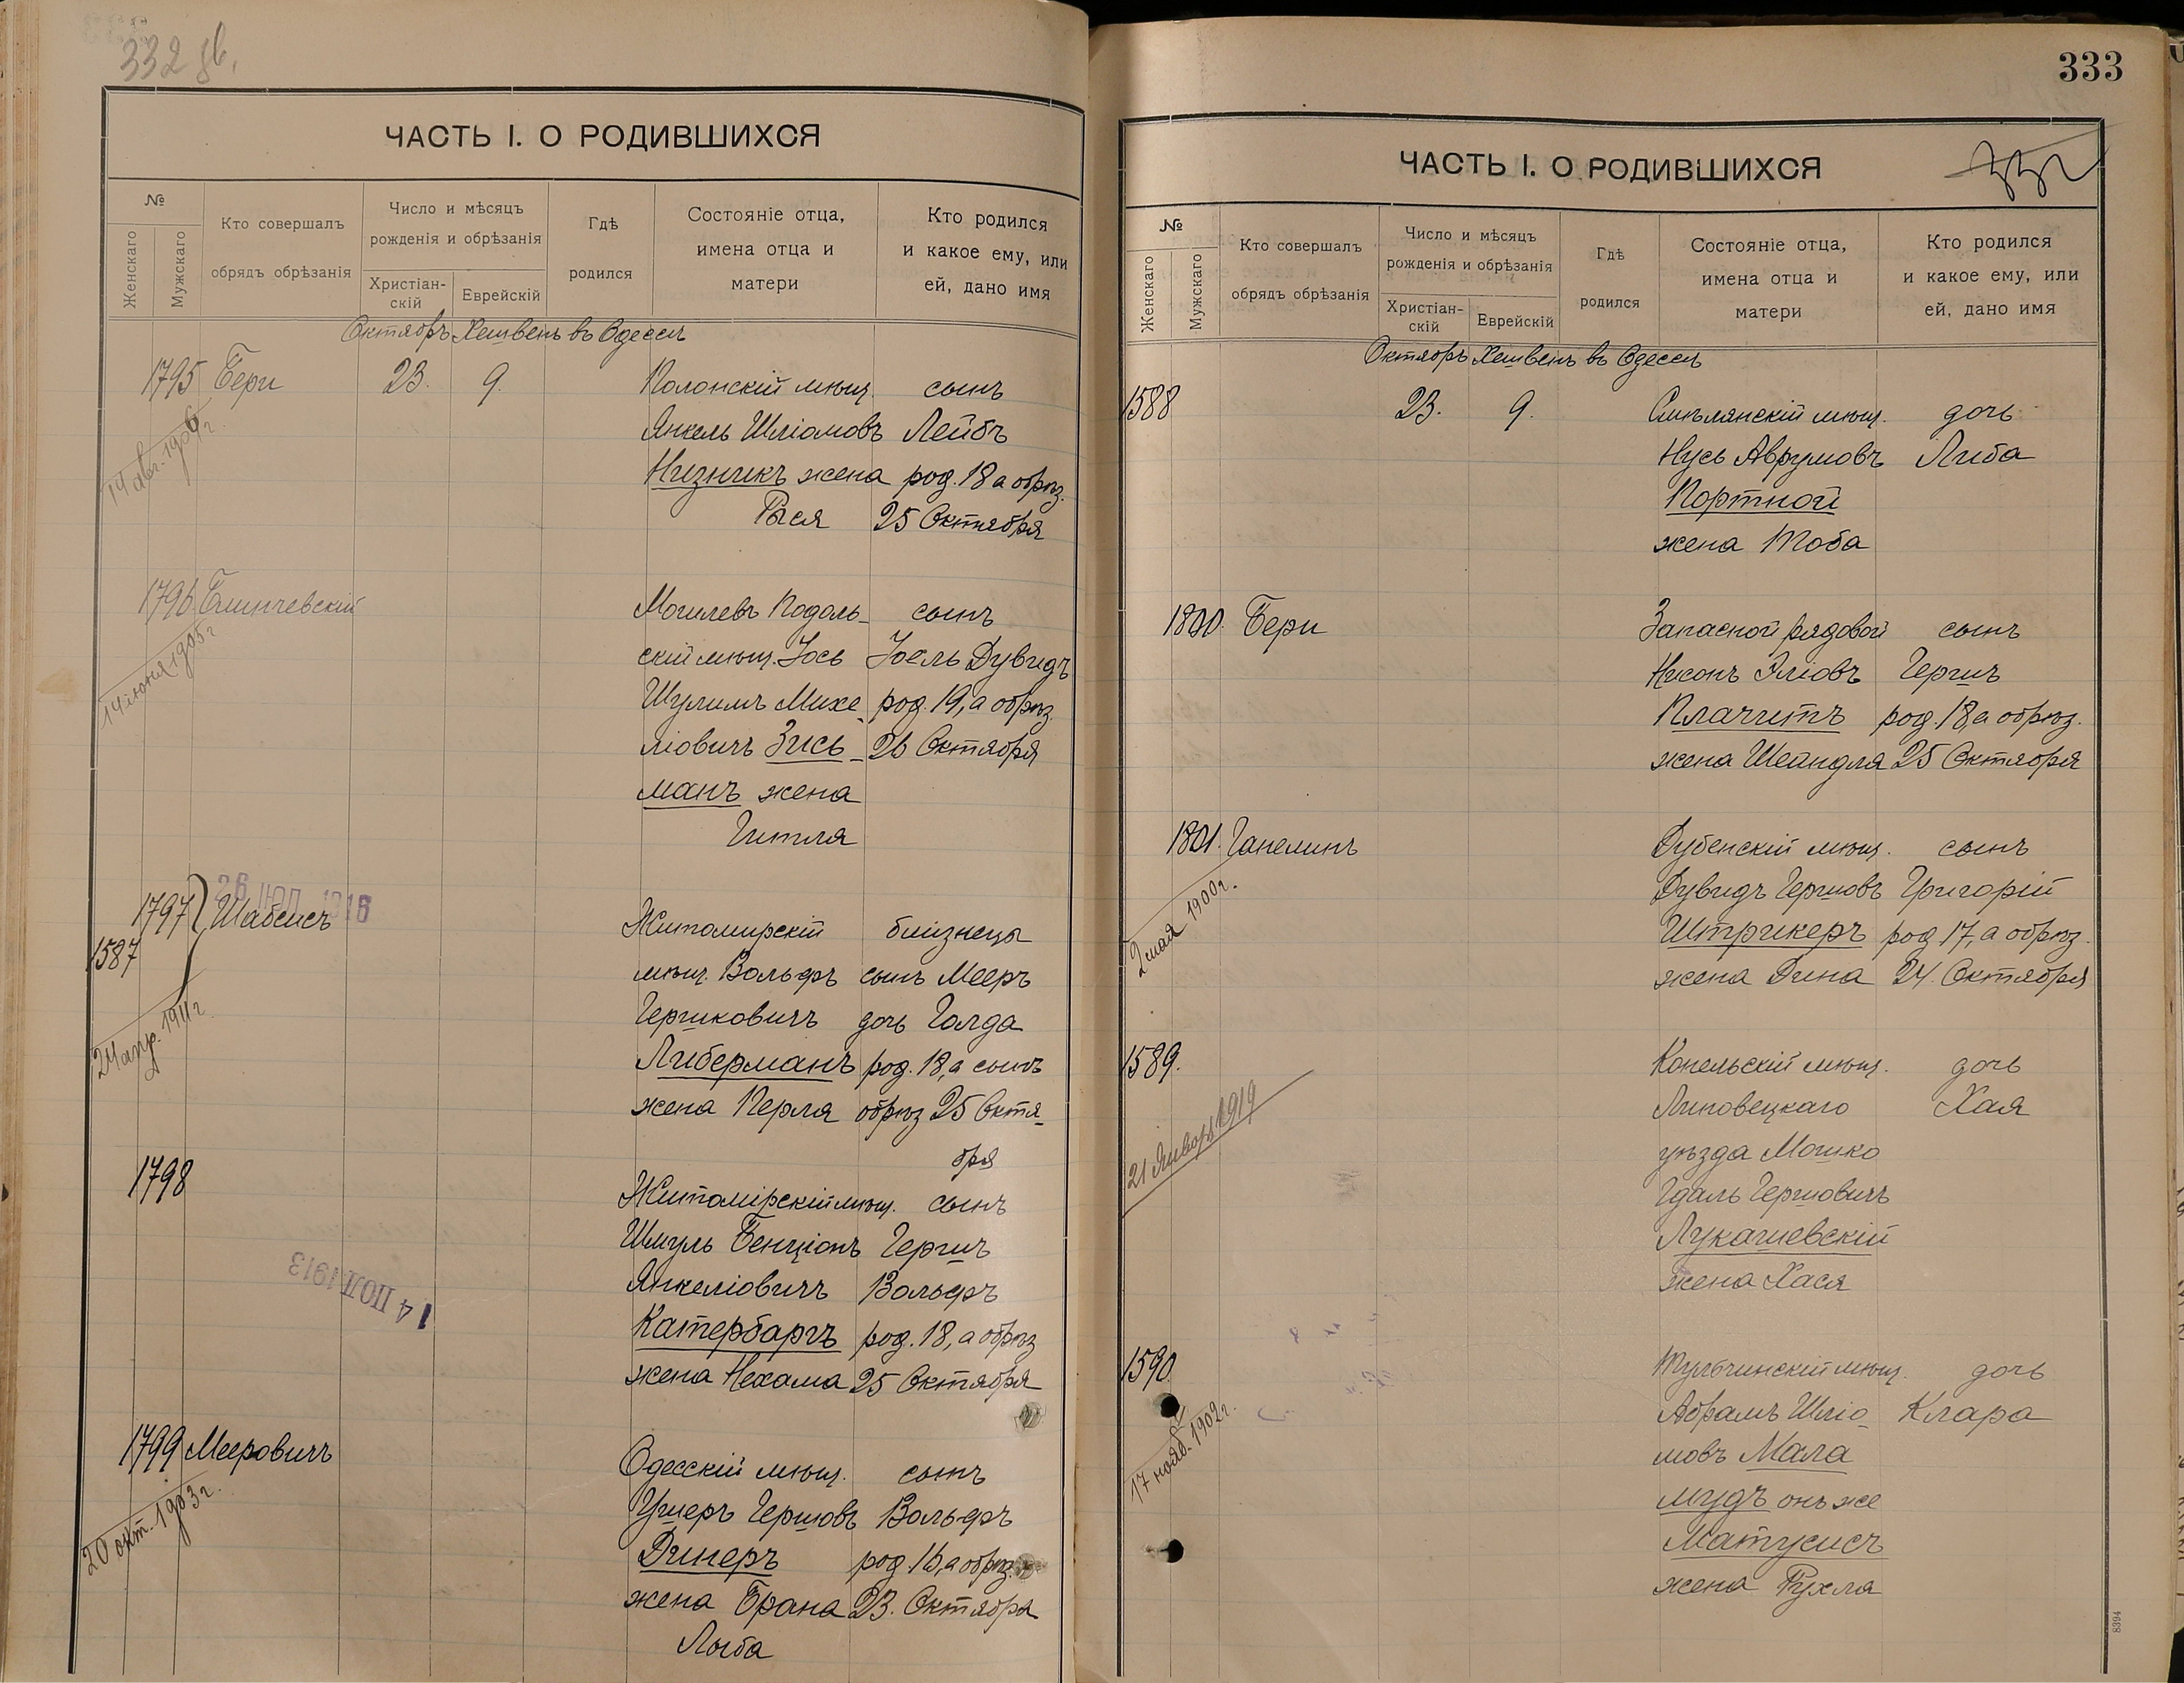 332 об.
ЧАСТЬ I. О РОДИВШИХСЯ
№
Женскаго
Мужскаго
Кто совершалъ
обрядъ обрѣзанія
Число и мѣсяцъ
рожденія и обрѣзанія
Христіан-
скій
Еврейскій
Гдѣ
родился
Состояніе отца,
имена отца и
матери
Кто родился
и какое ему, или
ей, дано имя
Октябрь Хешвень въ Одессѣ
1795 Бери 23. 9. Полонскій мѣщ. сынъ
Янкель Шліомовъ Лейбъ
Низникъ жена род. 18 а обрѣз.
Рыся 25 Октября
14 авг. 1906 г.
1796 Блинчевскій Могилевъ Подоль- сынъ
скій мѣщ. Іось Іоель Дувидъ
Шулимъ Михе- род. 19, а обрѣз.
ліовичъ Зись- 26 Октября
манъ жена
Гитля
14 іюня 1905 г.
1797 Шабсисъ Житомирскій близнецы
1587 мѣщ. Вольфъ сынъ Мееръ
Гершковичъ дочь Голда
Либерманъ род. 18, а сынъ
жена Перля обрѣз 25 Октя-
бря
24 апр. 1911 г.
1798 Житомірскій мѣщ. сынъ
Шмуль Бенціонъ Гершъ
Янкеліовичъ Вольфъ
Катербаргъ род. 18, а обрѣз
жена Нехама 25 Октября
14 ІЮЛ 1913
1799 Мееровичъ Одесскій мѣщ. сынъ
Ушеръ Гершовъ Вольфъ
Динеръ род. 16, а обрѣз.
жена Брана 23. Октября
Лыба
20 окт. 1903 г.
333
ЧАСТЬ I. О РОДИВШИХСЯ
№
Женскаго
Мужскаго
Кто совершалъ
обрядъ обрѣзанія
Число и мѣсяцъ
рожденія и обрѣзанія
Христіан-
скій
Еврейскій
Гдѣ
родился
Состояніе отца,
имена отца и
матери
Кто родился
и какое ему, или
ей, дано имя
Октябрь Хешвень въ Одессѣ
1588 23. 9. Смѣлянскій мѣщ. дочь
Нусь Аврумовъ Либа
Портной
жена Тоба
1800. Бери Запасной рядовой сынъ
Нисонъ Эліовъ Гершъ
Плачитъ род. 18, а обрѣз.
жена Шейндля 25 Октября
1801. Ганелинъ Дубенскій мѣщ. сынъ
Дувидъ Гершовъ Григорій
Штрикеръ род 17, а обрѣз.
жена Дина 24. Октября
2 мая 1900 г.
1589. Конельскій мѣщ. дочь
Липовецкаго Хая
уѣзда Мошко
Гдаль Гершовичъ
Лукашевскій
жена Хася
21 Января 1919
1590 Тульчинскій мѣщ. дочь
Абрамъ Шліо- Клара
мовъ Мала
мудъ онъ же
Матусисъ
жена Рухля
17 нояб. 1902 г.
8394